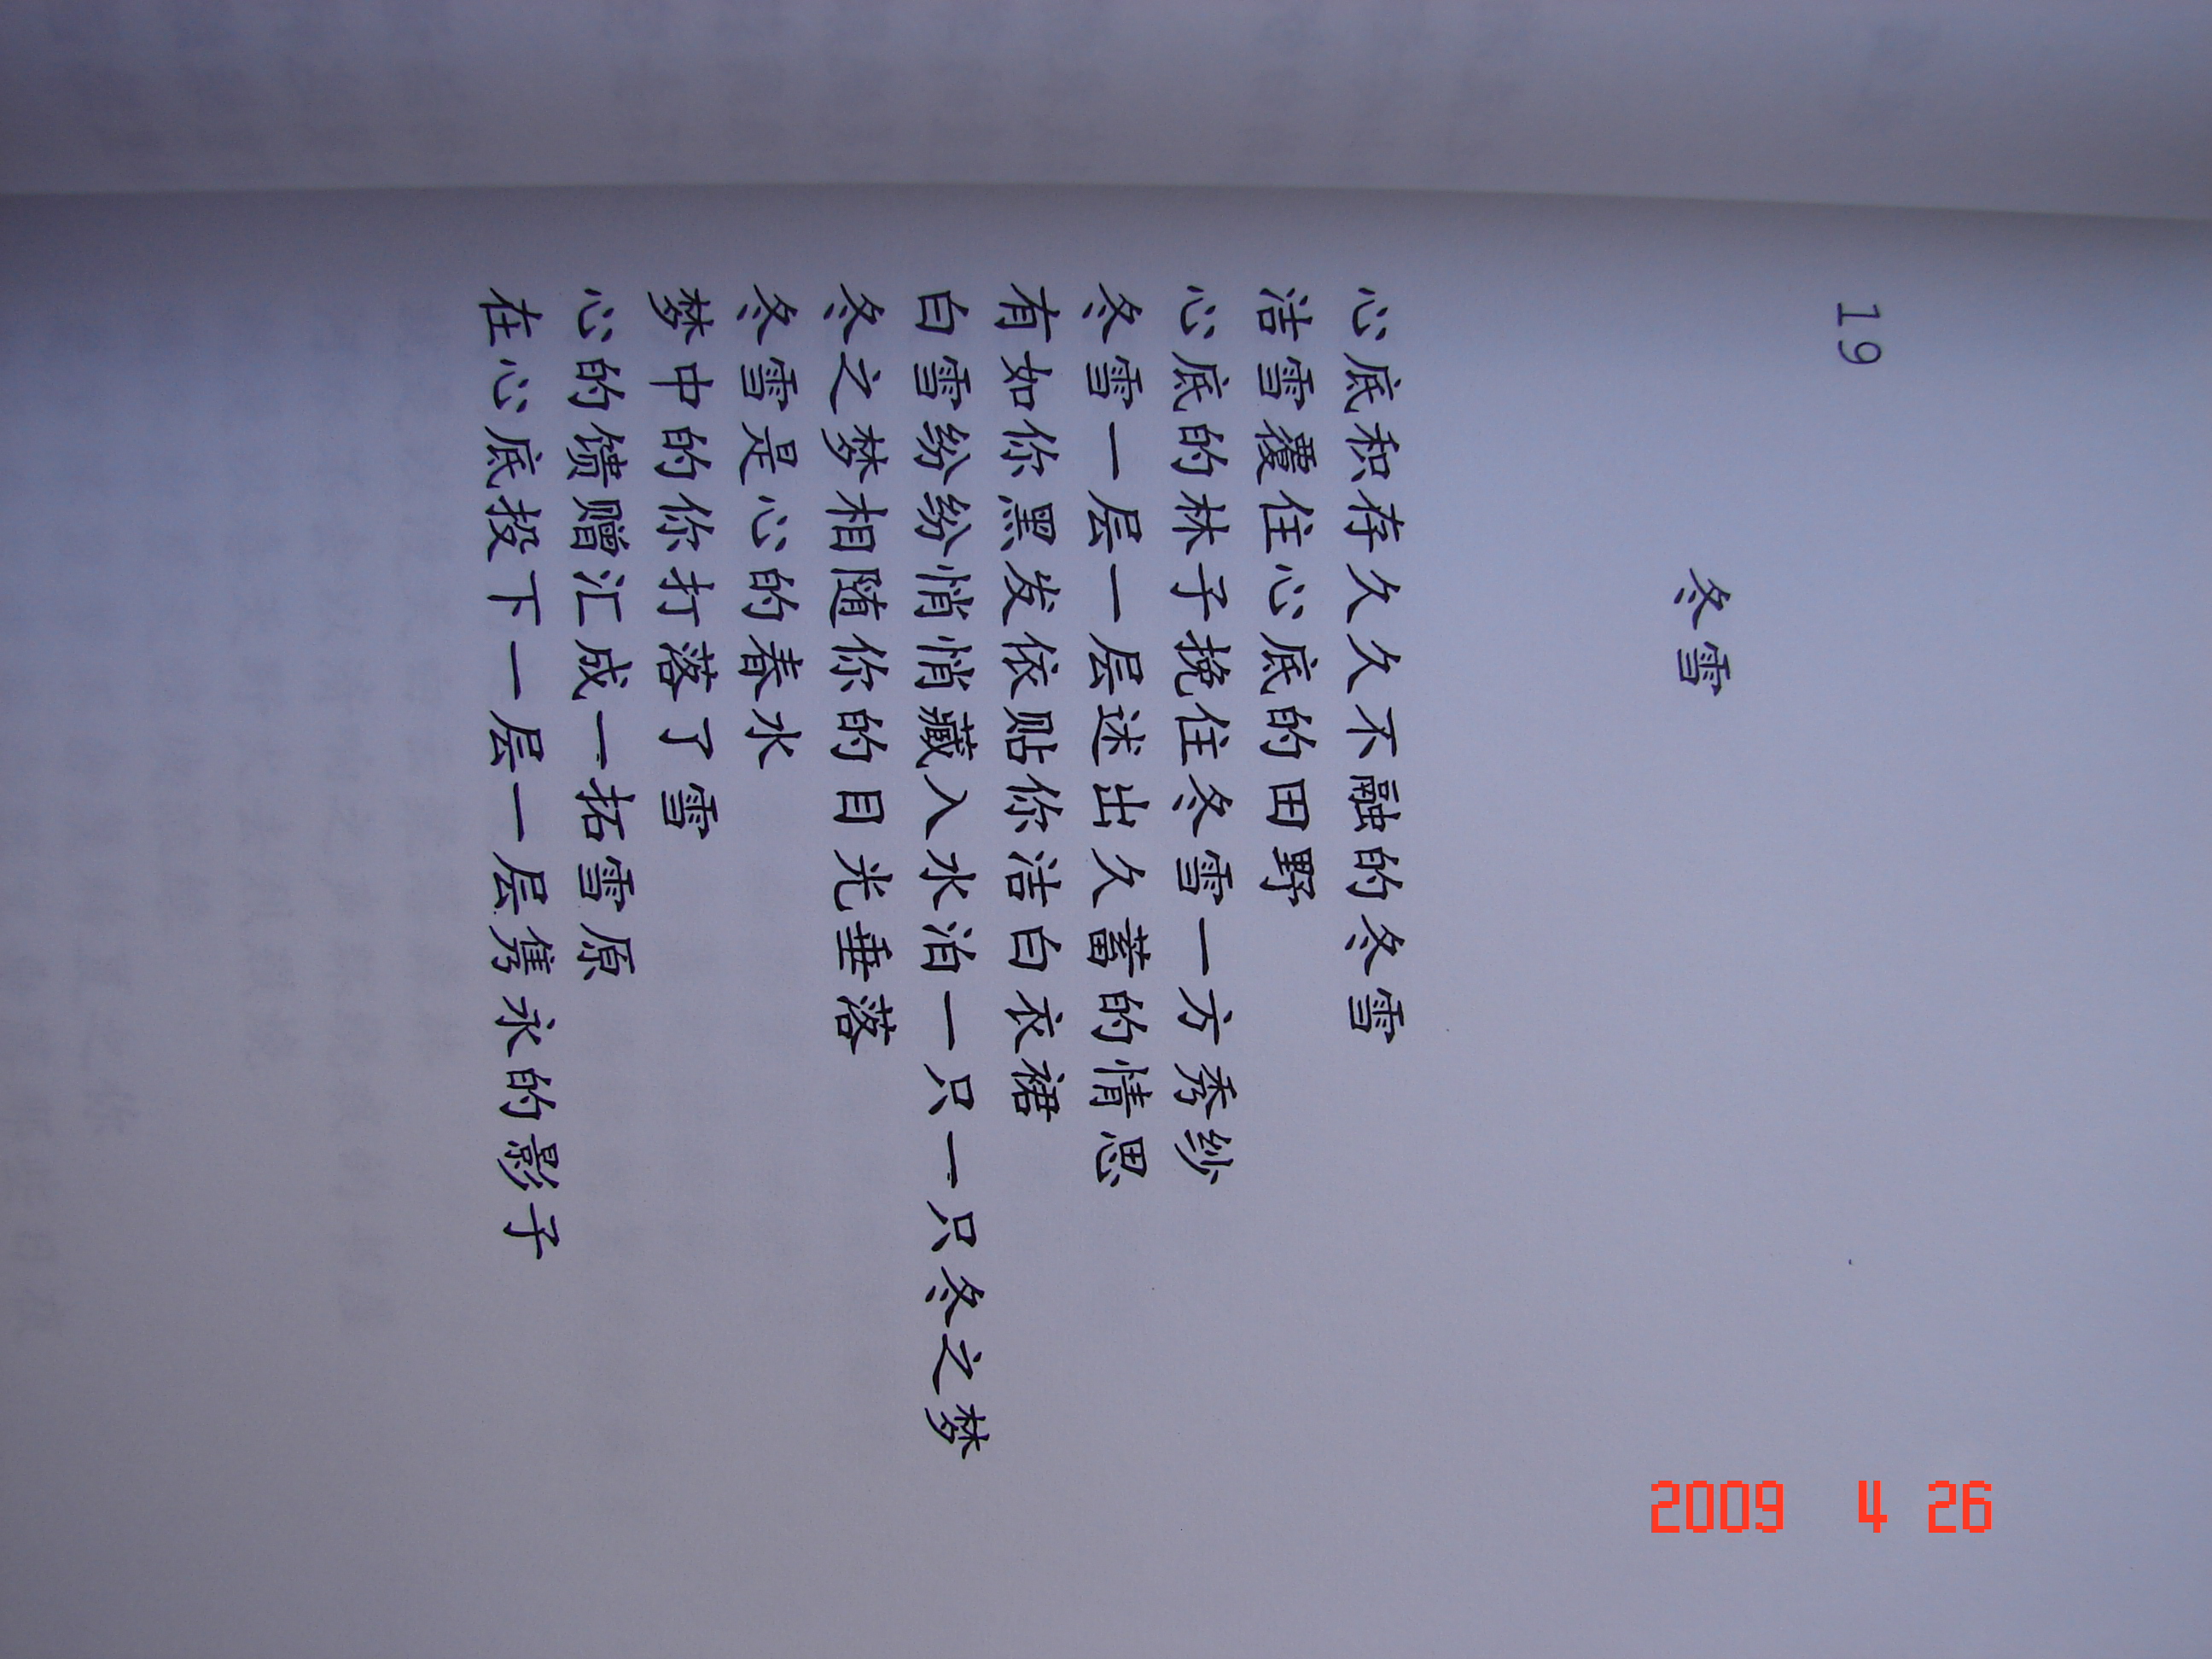 19
冬雪
心底积存久久不融的冬雪
洁雪覆住心底的田野
心底的林子挽住冬雪一方秀纱
冬雪一层一层述出久蓄的情思
有如你黑发依贴你洁白衣裙
白雪纷纷悄悄藏入水泊一只一只冬之梦
冬之梦相随你的目光垂落
冬雪是心的春水
梦中的你打落了雪
心的馈赠汇成一拓雪原
在心底投下一层一层隽永的影子
2009 4 26